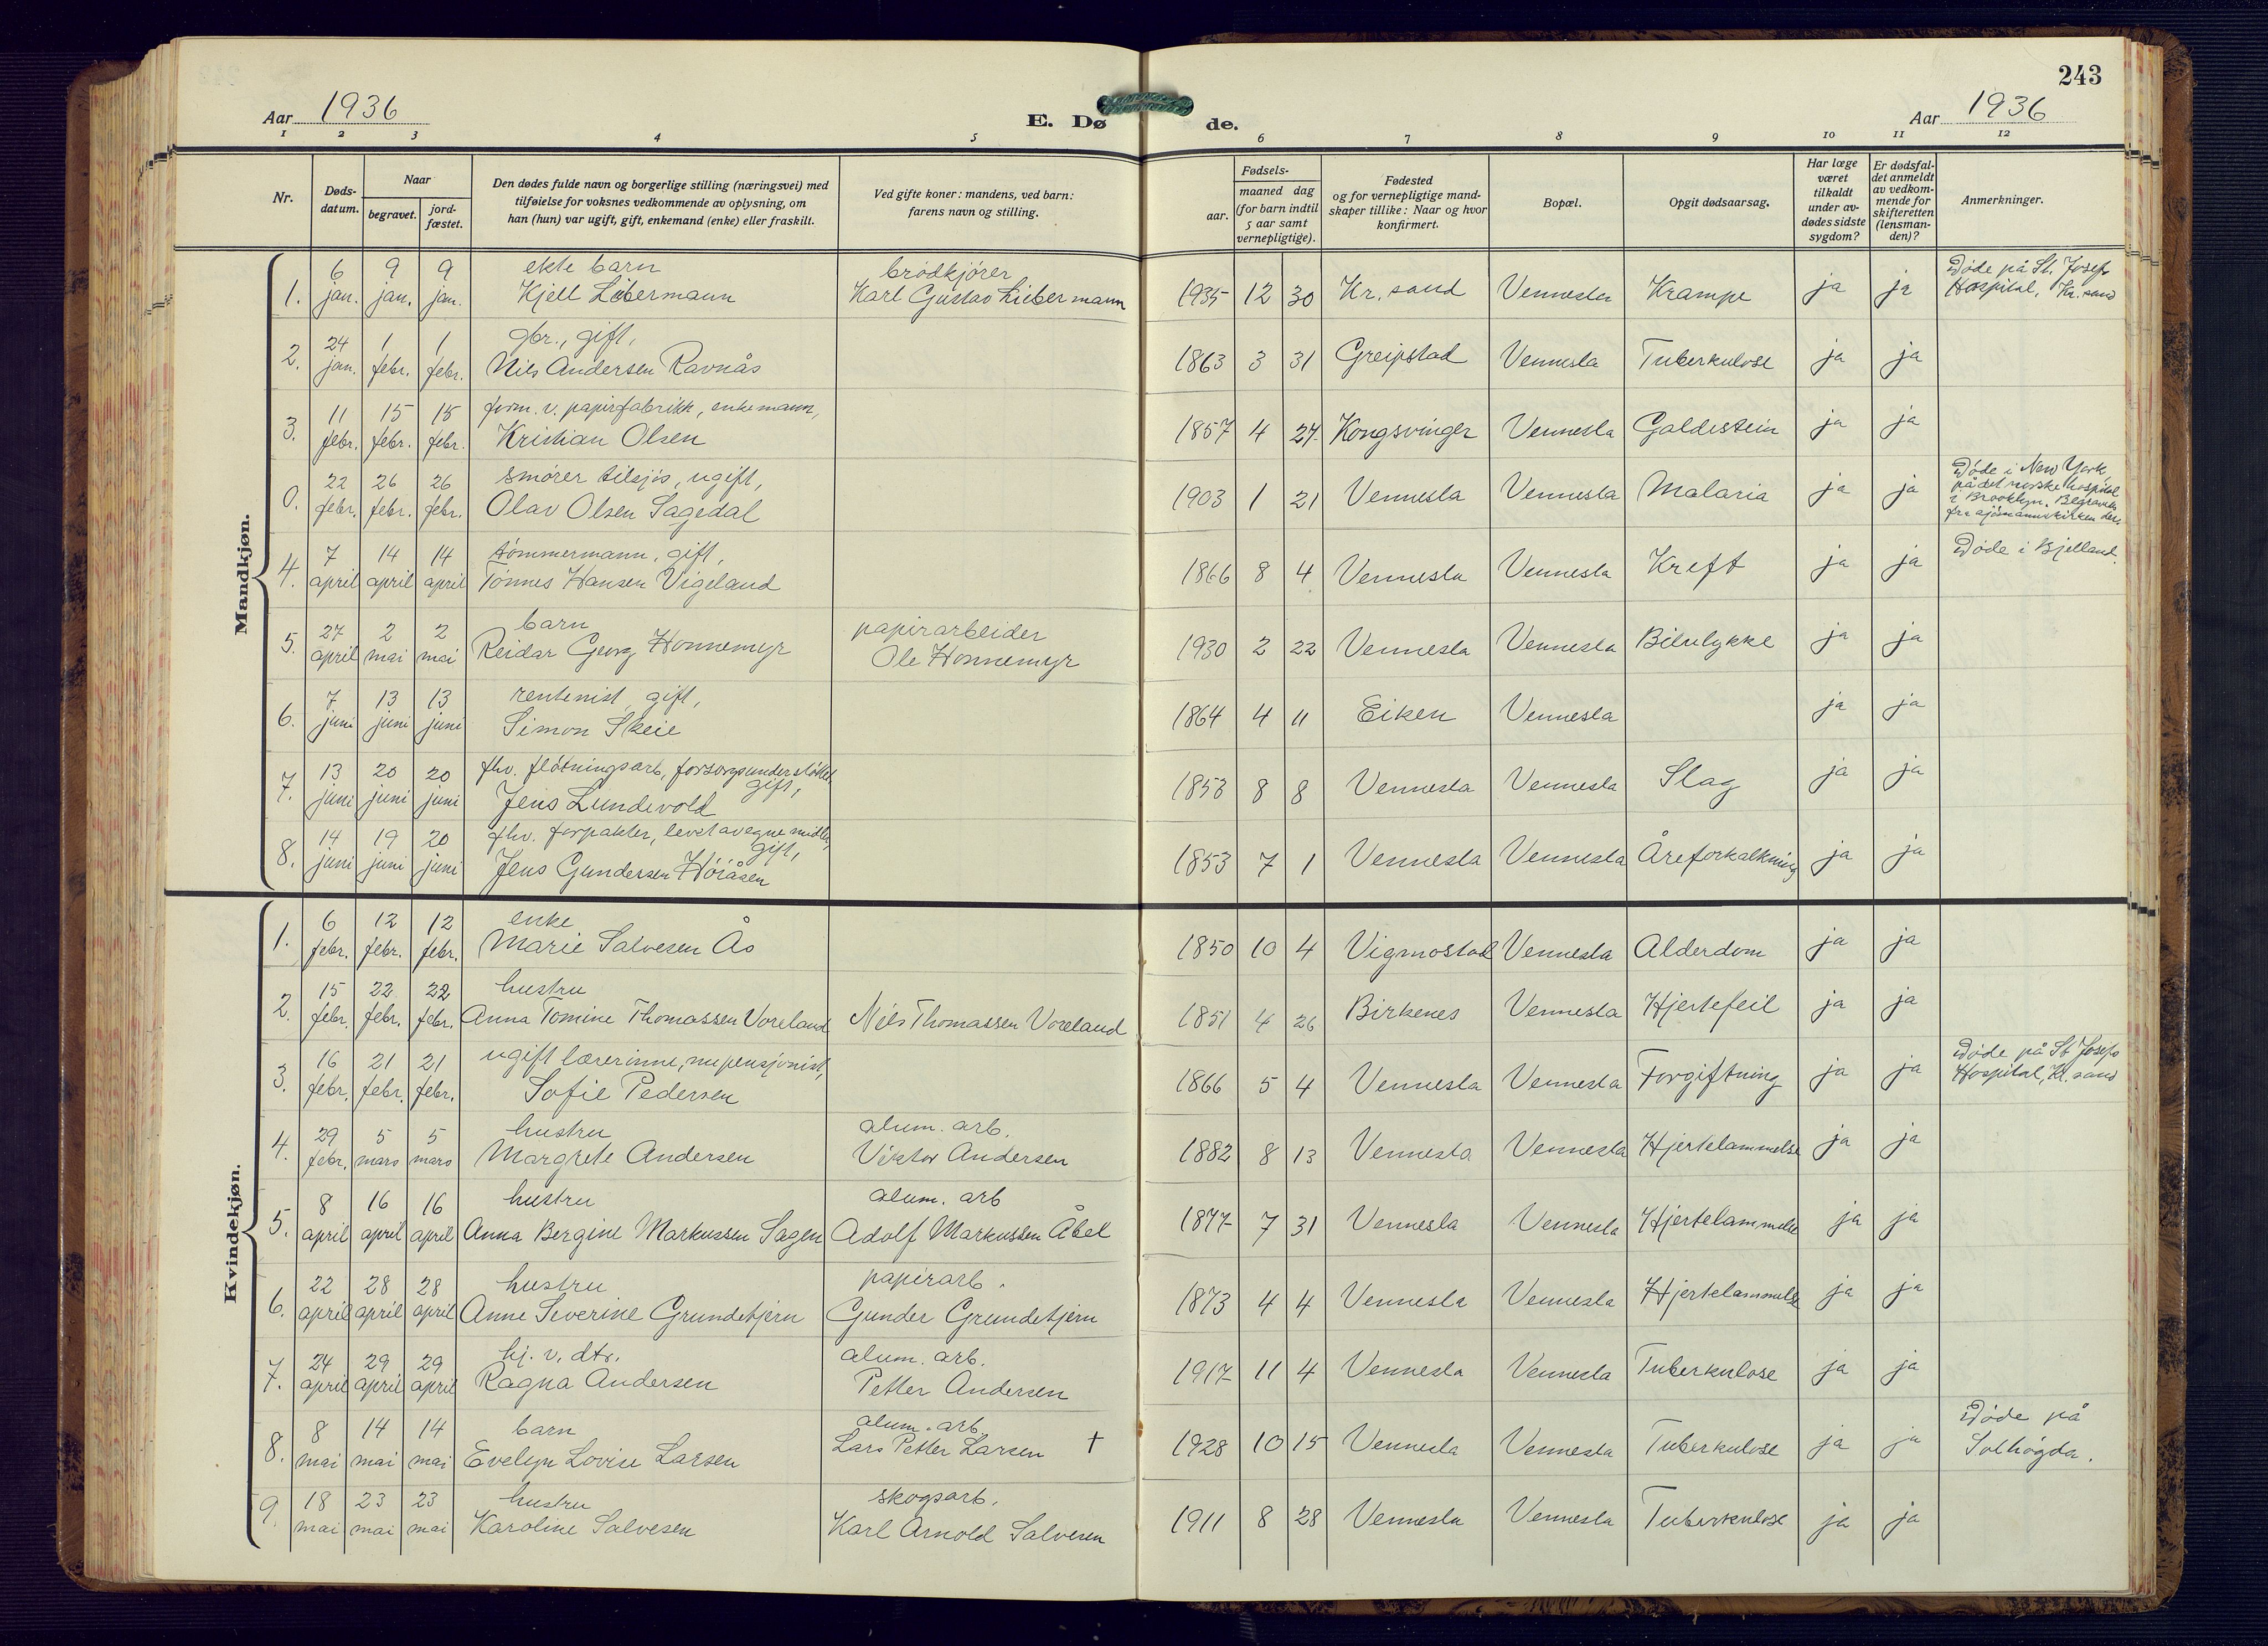 243
Aar 1936
E. Dø de.
Aar 1936
1 2 3 4 5 6 7 8 9 10 11 12
Nr.
Døds-
datum.
Naar
begravet.
jord-
fæstet.
Den dødes fulde navn og borgerlige stilling (næringsvei) med
tilføielse for voksnes vedkommende av oplysning, om
han (hun) var ugift, gift, enkemand (enke) eller fraskilt.
Ved gifte koner: mandens, ved barn:
farens navn og stilling.
Fødsels-
aar.
maaned dag
(for barn indtil
5 aar samt
vernepligtige).
Fødested
og for vernepligtige mand-
skaper tillike: Naar og hvor
konfirmert.
Bopæl.
Opgit dødsaarsag.
Har læge
været
tilkaldt
under av-
dødes sidste
sygdom?
Er dødsfal-
det anmeldt
av vedkom-
mende for
skifteretten
(lensman-
den)?
Anmerkninger.
Mandkjøn.
6 9 9 ekte barn brødkjører Døde på St. Josefs
1. jan. jan. jan. Kjell Libermann Karl Gustav Liebermann 1935 12 30 Kr. sand Vennesla Krampe ja ja Hospital, Kr. sand
24 1 1 gbr., gift,
2. jan. febr. febr. Nils Andersen Ravnås 1863 3 31 Greipstad Vennesla Tuberkulose ja ja
11 15 15 form. v. papirfabrikk, enkemann,
3. febr. febr. febr. Kristian Olsen 1857 4 27. Kongsvinger Vennesla Galdestein ja ja
22 26 26 smører tilsjøs, ugift,
0. febr. febr. febr. Olav Olsen Sagedal 1903 1 21 Vennesla Vennesla Malaria ja ja
Døde i New York
på det norske hospital
i Brooklyn. Begravet
fra sjømannskirken ders.
7 14 14 tømmermann, gift,
4. april april april Tønnes Hansen Vigeland 1866 8 4 Vennesla Vennesla Kreft ja ja Døde i Bjelland.
27 2 2 barn papirarbeider
5. april mai mai Reidar Georg Honnemyr Ole Honnemyr 1930 2 22 Vennesla Vennesla Bilulykke ja ja
7 13 13 rentenist, gift,
6. juni juni juni Simon Skeie 1864 4 11 Eiken Vennesla ja ja
13 20 20 fhv. fløtningsarb, forsorgsunderstøttet,
gift,
7. juni juni juni Jens Lundevold 1853 8 8 Vennesla Vennesla Slag ja ja
14 19 20 fhv. forpakter, levet av egne midler,
gift,
8. juni juni juni Jens Gundersen Høiåsen 1853 7 1 Vennesla Vennesla Åreforkalkning ja ja
Kvindekjøn.
6 12 12 enke
1. febr. febr. febr. Marie Salvesen Ås 1850 10 4 Vigmostad Vennesla Alderdom ja ja
15 22 22 hustru
2. febr. febr. febr. Anna Tomine Thomassen Voreland Nils Thomassen Voreland 1851 4 26 Birkenes Vennesla Hjertefeil ja ja
16 21 21 ugift lærerinne, nu pensjonist, Døde på St Josefs
3. febr. febr. febr. Sofie Pedersen 1866 5 4 Vennesla Vennesla Forgiftning ja ja Hospital, Kr. sand
29 5 5 hustru alum. arb.
4. febr. mars mars Margrete Andersen Viktor Andersen 1882 8 13 Vennesla Vennesla Hjertelammelse ja ja
8 16 16 hustru alum. arb
5. april april april Anna Bergine Markussen Sagen Adolf Markussen Åbel 1877 7 31 Vennesla Vennesla Hjertelammelse ja ja
22 28 28 hustru papirarb.
6. april april april Anne Severine Grundetjern Gunder Grundetjern 1873 4 4 Vennesla Vennesla Hjertelammelse ja ja
24 29 29 hj. v. dtr. alum. arb.
7. april april april Ragna Andersen Petter Andersen 1917 11 4 Vennesla Vennesla Tuberkulose ja ja
8 14 14 barn alum. arb. Døde på
8. mai mai mai Evelyn Lovise Larsen Lars Petter Larsen † 1928 10 15 Vennesla Vennesla Tuberkulose ja ja Solhøgda.
18 23 23 hustru skogsarb.
9. mai mai mai Karoline Salvesen Karl Arnold Salvesen 1911 8 28 Vennesla Vennesla Tuberkulose ja ja